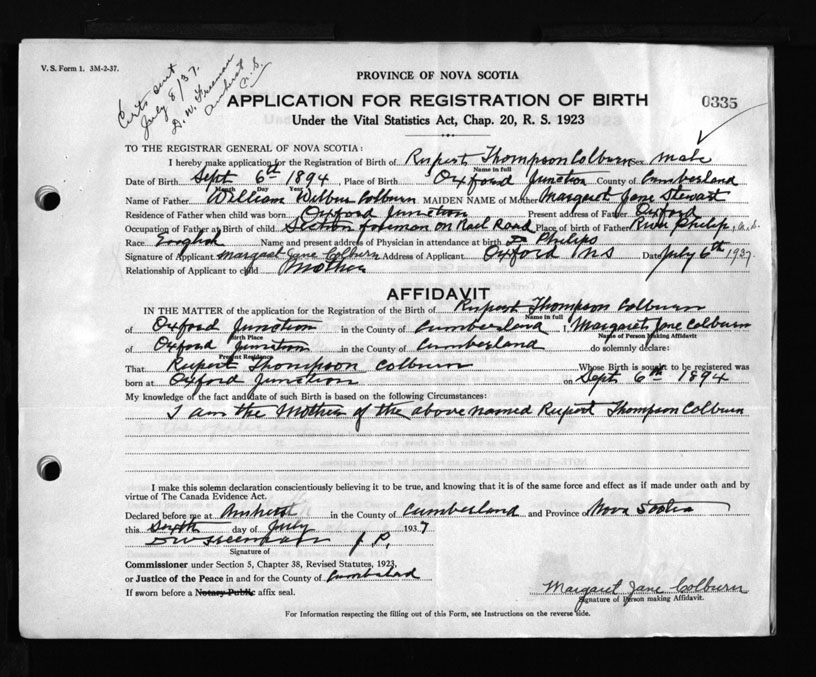 V. S. Form 1. 3M-2-37.
Certs sent
July 8/37.
D. W. Freeman
Amherst
N. S.
PROVINCE OF NOVA SCOTIA
APPLICATION FOR REGISTRATION OF BIRTH
0335
Under the Vital Statistics Act, Chap. 20, R. S. 1923
TO THE REGISTRAR GENERAL OF NOVA SCOTIA:
I hereby make application for the Registration of Birth of Rupert Thompson Colburn Sex male
Name in full
Date of Birth Sept 6th 1894 Place of Birth Oxford Junction County of Cumberland
Month Day Year
Name of Father William Wilbur Colburn MAIDEN NAME of Mother Margaret Jane Stewart
Residence of Father when child was born Oxford Junction Present address of Father Oxford
Occupation of Father at Birth of child Section foreman on Rail Road Place of birth of Father River Philip, N.S.
Race English Name and present address of Physician in attendance at birth Philips
Signature of Applicant Margaret Jane Colburn Address of Applicant Oxford NS Date July 6th 1937.
Relationship of Applicant to child Mother
AFFIDAVIT
IN THE MATTER of the application for the Registration of the Birth of Rupert Thompson Colburn
Name in full
of Oxford Junction in the County of Cumberland I, Margaret Jane Colburn
Birth Place Name of Person Making Affidavit
of Oxford Junction in the County of Cumberland do solemnly declare:
Present Residence
That Rupert Thompson Colburn Whose Birth is sought to be registered was
born at Oxford Junction on Sept 6th 1894
My knowledge of the fact and date of such Birth is based on the following Circumstances:
I am the Mother of the above named Rupert Thompson Colburn
I make this solemn declaration conscientiously believing it to be true, and knowing that it is of the same force and effect as if made under oath and by
virtue of The Canada Evidence Act.
Declared before me at Amherst in the County of Cumberland and Province of Nova Scotia
this Sixth day of July 1937
D W Freeman J. P.
Signature of
Commissioner under Section 5, Chapter 38, Revised Statutes, 1923,
or Justice of the Peace in and for the County of Cumberland
If sworn before a Notary Public affix seal.
Margaret Jane Colburn
Signature of Person making Affidavit.
For Information respecting the filling out of this Form, see Instructions on the reverse side.